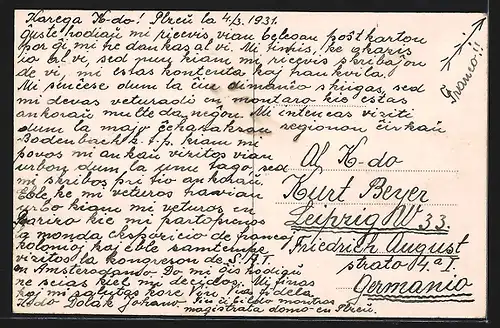 Karega K-do! Plzeň la 4/3. 1931.
Ĝuste hodiaŭ mi ricevis vian belecan poŝtkarton
por ĝi mi tre dankas al vi. Mi timis, ke
al vi, sed nun kiam mi ricevis skribaĵon
de vi, mi estas kontenta kaj trankvila.
Mi dum la dimanĉo skiigas, sed
mi devas veturadi en montaro kie estas
ankoraŭ multe da neĝo. Mi intencas viziti
dum la majo regionon ĉirkaŭ
Bodenbach k.t.p. kiam mi
povos mi ankaŭ vizitos vian
urbon dum la unu tago, sed
mi skribos pri tio ankoraŭ.
Eble, ke mi veturos tra vian
urbo kiam mi veturos en
Parizo kie mi partoprenos
la monda ekspozicio de
kolonioj kaj eble samtempe
vizitos la kongreson de S.A.T.
en Amsterdamo. Do mi ĝis hodiaŭ
ne scias kiel mi decidos. Mi finas
kaj mi salutas kore Vin. Via fidela
K-do Polák Johano montras
magistrata domo en Plzeň.
Franco!!
Al K-do
Kurt Beyer
Leipzig W 33.
Friedrich August
strato 14.a I
Germanio